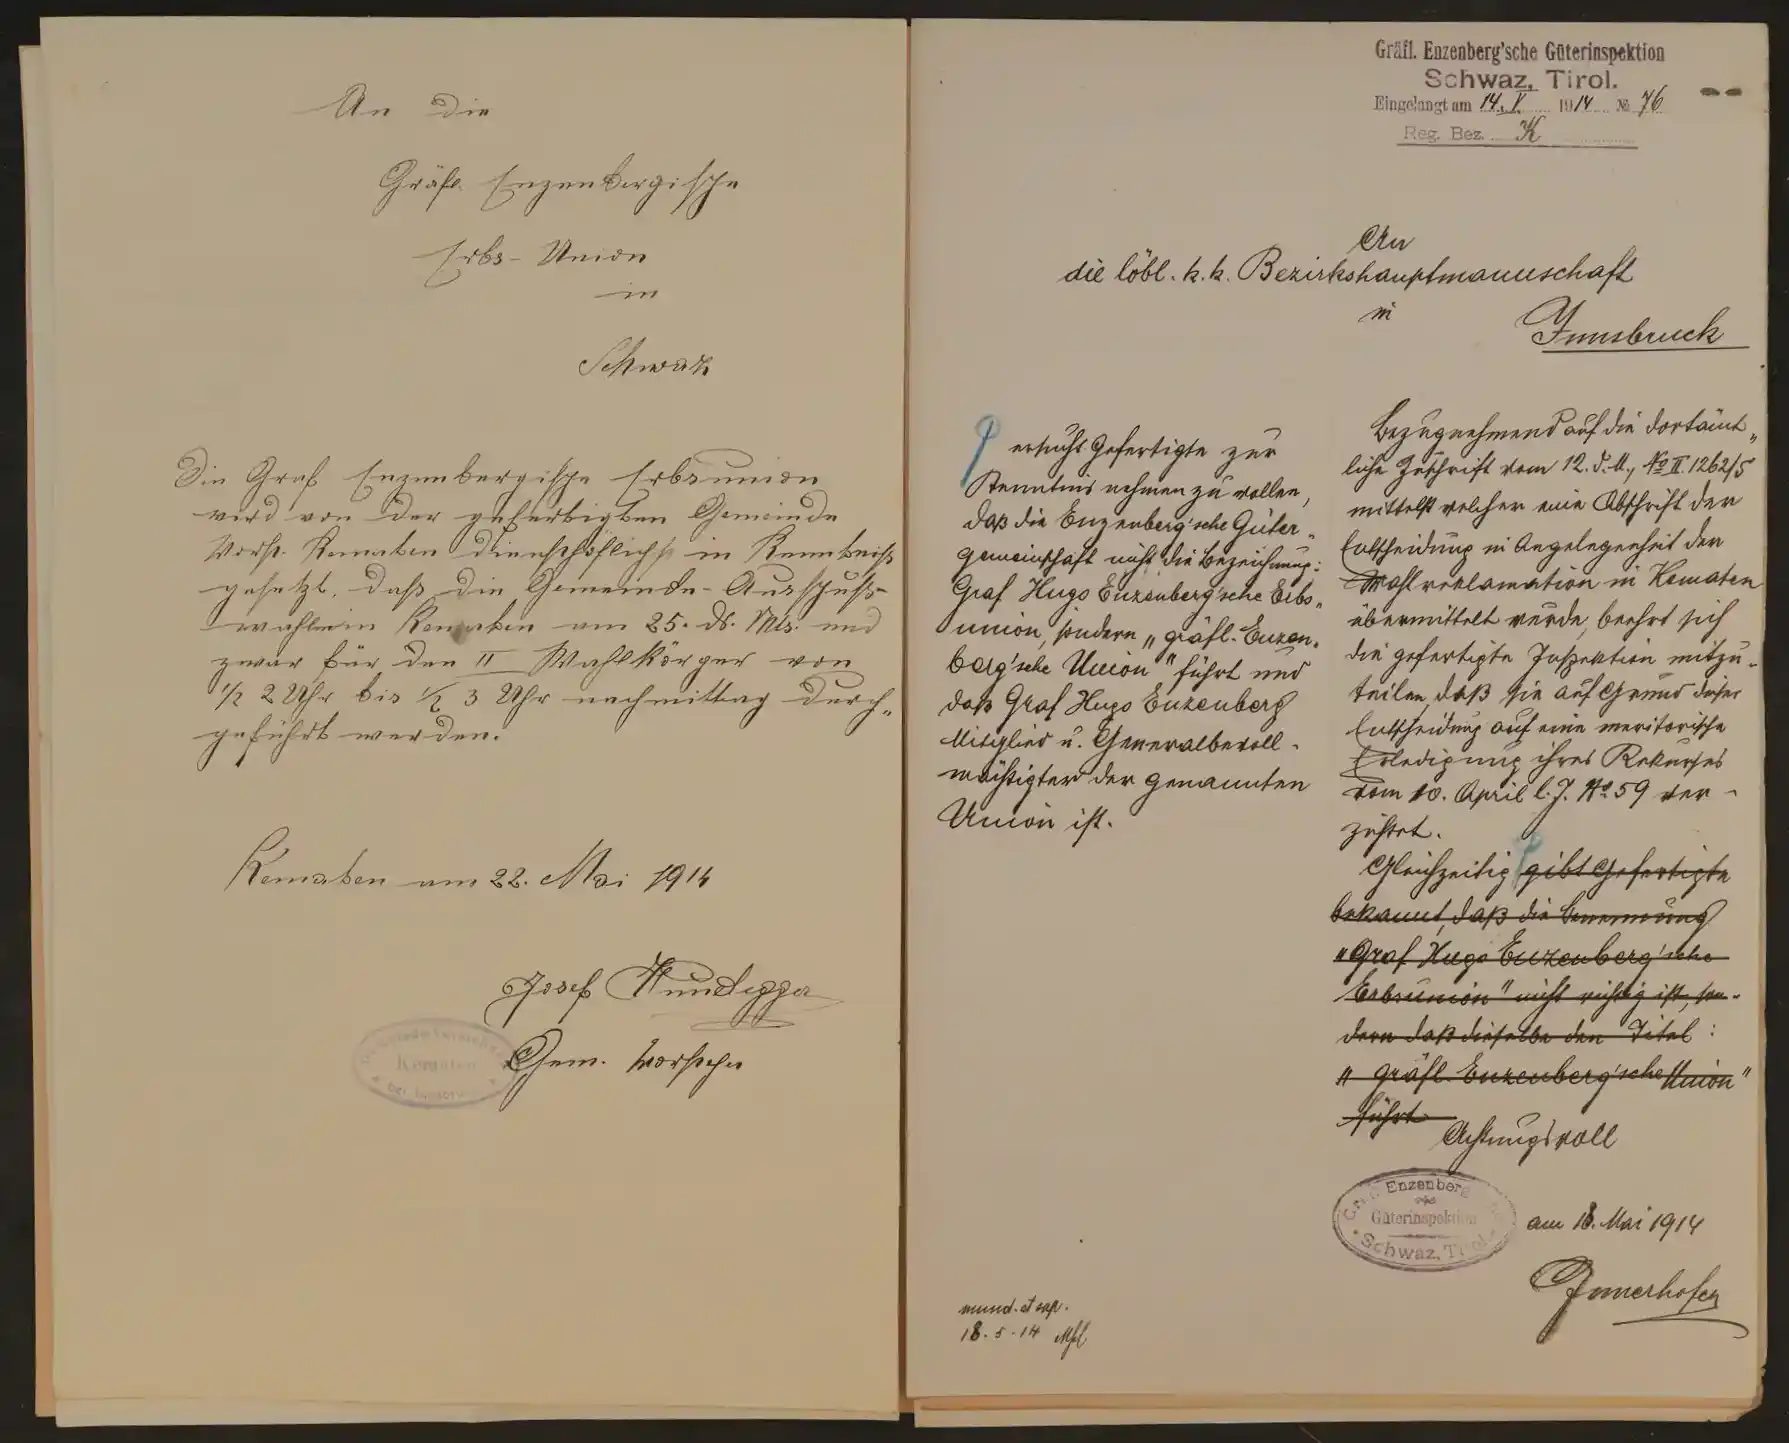 An die
Gräfl. Enzenbergische
Erbs-Union
in
Schwaz
Die Graf Enzenbergische Erbsunion
wird von der gefertigten Gemeinde
Vorst. Kematen dienschhöflichst in Kenntniß
gesetzt, daß die Gemeinde-Ausschuß-
wahlen in Kematen am 25. ds. Mts. und
zwar für den II Wahlkörper von
1/2 2 Uhr bis 1/2 3 Uhr nachmittag durch-
geführt werden.
Kematen am 22. Mai 1914
Josef
Gem. Vorsteher
Kematen
Gräfl. Enzenberg'sche Güterinspektion
Schwaz, Tirol.
Eingelangt am 14. V. 1914 № 76
Reg. Bez. K
An
die löbl. k. k. Bezirkshauptmannschaft
in
Innsbruck
ersucht Gefertigte zur
Kenntnis nehmen zu wollen,
daß die Enzenberg'sche Güter-
gemeinschaft nicht die Bezeichnung:
Graf Hugo Enzenberg'sche Erbs-
union, sondern „gräfl. Enzen-
berg'sche Union" führt und
daß Graf Hugo Enzenberg
Mitglied u. Generalbevoll-
mächtigter der genannten
Union ist.
Bezugnehmend auf die dortämt-
liche Zuschrift vom 12. d. M., № II 1262/5
mittelst welcher eine Abschrift der
Entscheidung in Angelegenheit der
Wahlreklamation in Kematen
übermittelt wurde, beehrt sich
die gefertigte Inspektion mitzu-
teilen, daß sie auf Grund dieser
Entscheidung auf eine meritorische
Erledigung ihres Rekurses
vom 10. April l. J. № 59 ver-
zichtet.
Gleichzeitig gibt Gefertigte
bekannt, daß die Benennung
„Graf Hugo Enzenberg'sche
Erbsunion" nicht richtig ist, son-
dern daß dieselbe den Titel:
„gräfl. Enzenberg'sche Union"
führt
Achtungsvoll
Enzenberg
Güterinspektion
Schwaz, Tirol
am 18. Mai 1914
Innerhofer
mund. et exp.
18. 5. 14